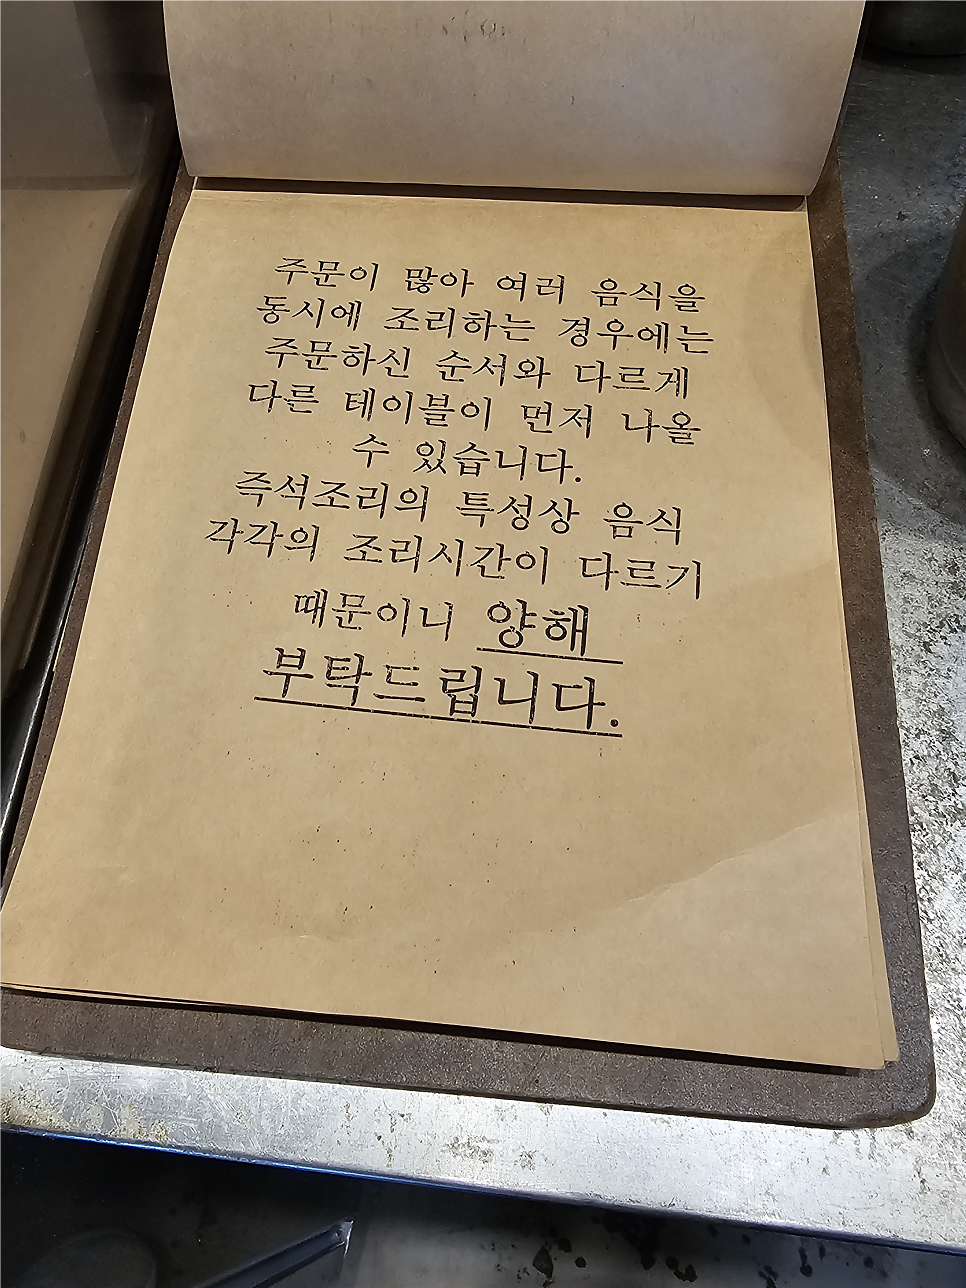 주문이 많아 여러 음식을
동시에 조리하는 경우에는
주문하신 순서와 다르게
다른 테이블이 먼저 나올
수 있습니다.
즉석조리의 특성상 음식
각각의 조리시간이 다르기
때문이니 양해
부탁드립니다.